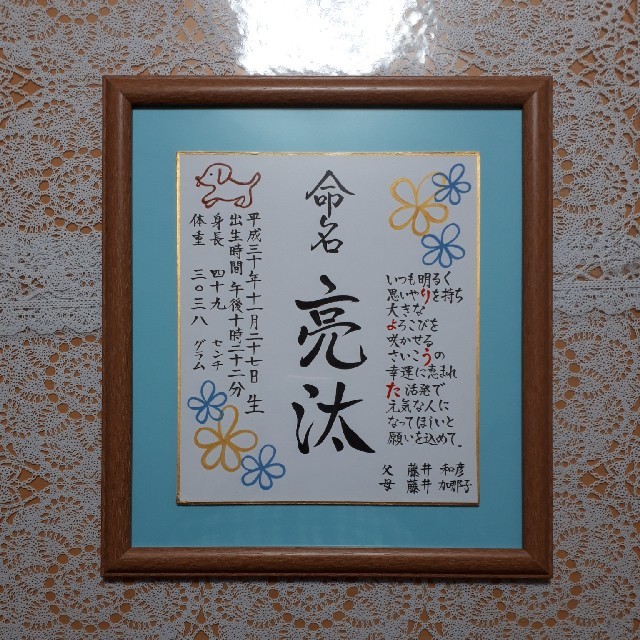 命名
亮汰
いつも明るく
思いやりを持ち
大きな
よろこびを
咲かせる
さいこうの
幸運に恵まれ
た 活発で
元気な人に
なってほしいと
願いを込めて、
父 藤井 和彦
母 藤井 加耶子
平成三十年十一月二十七日 生
出生時間 午後十時二十二分
身長 四十九 センチ
体重 三〇三八 グラム